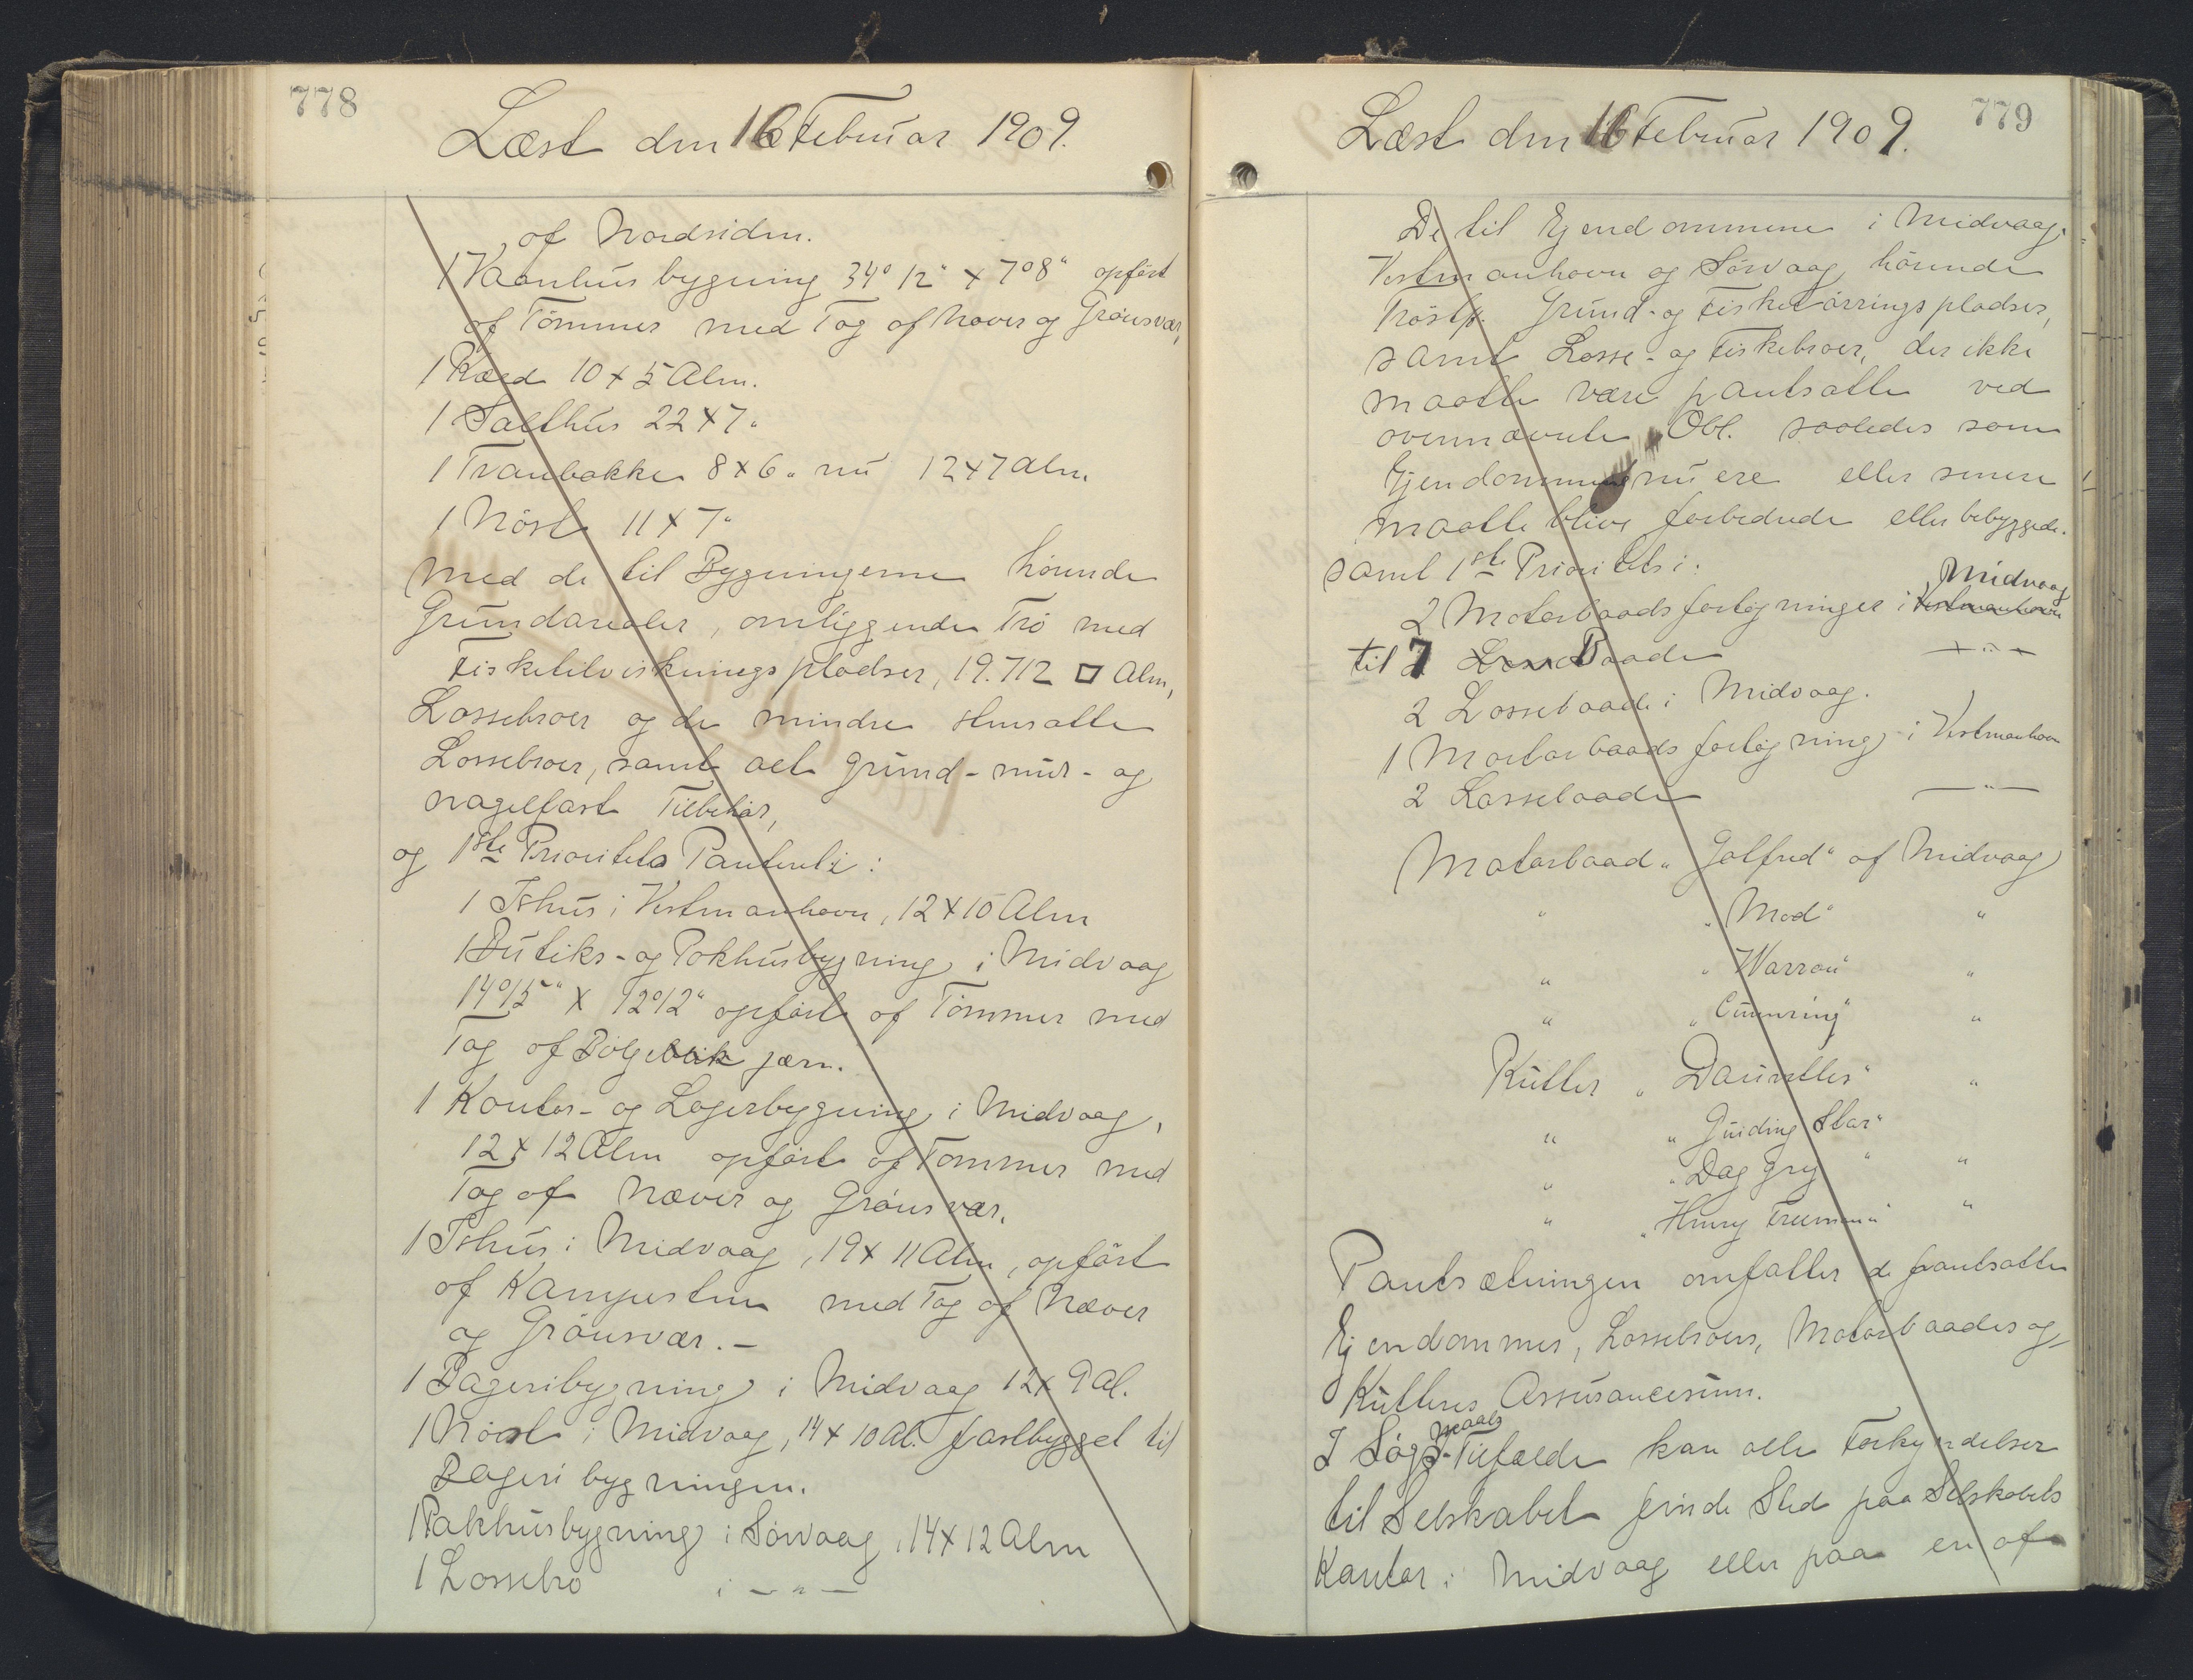 778
Læst den 16 Februar 1909.
af Nordsiden.
1 Vaanhusbygning 34° 12" x 7°8" opført
af Tömmer med Tag af Næver og Grønsvær,
1 Kæld 10 x 5 Alm.
1 Salthus 22 x 7 "
1 Tranbakke 8 x 6 " nu 12 x 7 Alm.
1 Nöst 11 x 7 "
med de til Bygningerne hörende
Grundarealer, omliggende Trö med
Fisketilvirkningspladser, 19.712 □ Alm,
Lossebroer og de mindre stensatte
Lossebroer, samt alt grund- mur- og
nagelfast Tilbehør,
og 1ste Prioritets Panteret i:
1 Ishus i Vestmanhavn, 12 x 10 Alm
1 Butiks- og Pakhusbygning i Midvaag
14°15" x 12°12" opført af Tömmer med
Tag af Bölgeblik jærn.
1 Kontor- og Lagerbygning i Midvaag,
12 x 12 Alm opført af Tömmer med
Tag af Næver og Grönsvær.
1 Ishus i Midvaag, 19 x 11 Alm, opført
af Kampesten med Tag af Næver
og Grönsvær. -
1 Bageribygning i Midvaag 12 x 9 Al.
1 Nöst i Midvaag, 14 x 10 Al. fastbygget til
Bageribygningen.
1 Pakhusbygning i Sörvaag, 14 x 12 Alm
1 Lossebro i - " -
779
Læst den 16 Februar 1909.
De til Ejendommene i Midvaag,
Vestmanhavn og Sörvaag hörende
Tröstk. Grund- og Fisketörringspladser,
samt Losse- og Fiskebroer, der ikke
maatte være pantsatte ved
ovennævnte Obl. saaledes som
Ejendommene nu ere eller senere
maatte blive forbedrede eller bebyggede.
samt 1ste Prioritet i:
2 Motorbaadsfortøjninger i Vestmanhavn Midvaag
til 7 Losse Baade - " -
2 Lossebaade i Midvaag.
1 Mortorbaadsfortøjning i Vestmanhavn
2 Lossebaade - " -
Motorbaad "Golfred" af Midvaag
" "Mod" "
" "Warrou" "
" "Cumring" "
Kutter "Dauntles" "
" "Guiding Star"
" "Daggry" "
" "Henry Freemann" "
Pantsætningen omfatter de pantsatte
Ejendommes, Lossebroers, Motorbaades og
Kutteres Assurancesum.
I Søgsmaals-Tilfælde kan alle Forkyndelser
til Selskabet finde Sted paa Selskabets
Kontor i Midvaag eller paa en af